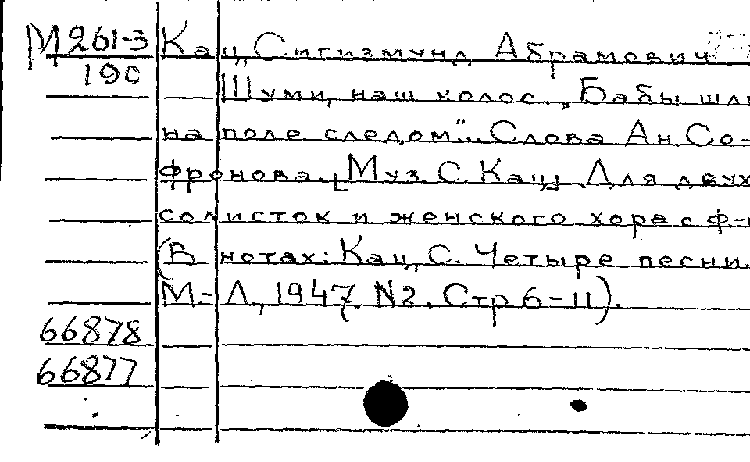 М261-3 Кац, Сигизмунд Абрамович
190
Шуми, наш колос. „Бабы шли
на поле следом". Слова Ан. Со-
фронова. [Муз. С. Кац]. Для двух
солисток и женского хора с ф-п
(В нотах: Кац, С. Четыре песни.
М.-Л., 1947. N2. Стр. 6-11).
66878
66877